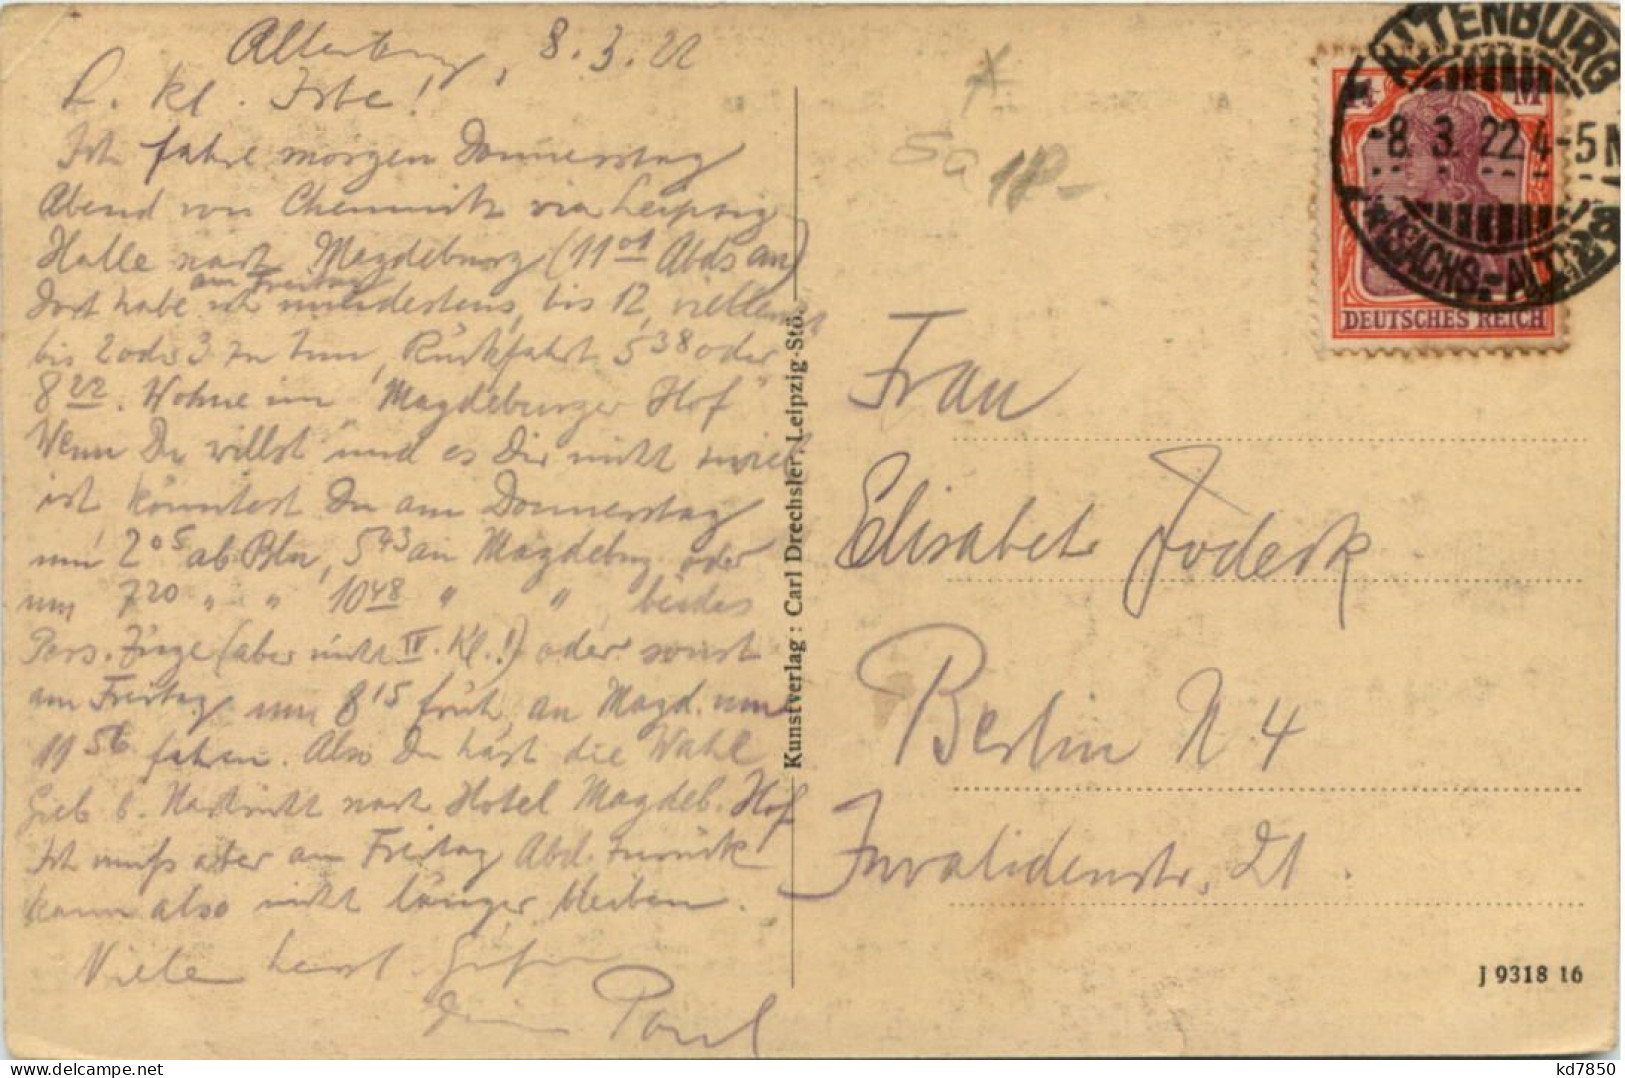 Altenburg, 8.3.22
L. kl. !
Ich fahre morgen Donnerstag
Abend von Chemnitz via Leipzig
Halle nach Magdeburg (11 01 Abds an)
am Freitag
Dort habe ich mindestens, bis 12, vielleicht
bis 2 oder 3 zu tun, Rückfahrt 5 38 oder
8 22. Wohne im "Magdeburger Hof"
Wenn Du willst und es Dir nicht zuviel
ist könntest Du am Donnerstag
um 2 05 ab Bln, 5 43 an Magdeburg oder
um 7 20 " " 10 48 " " beides
Pers. Züge (aber nicht IV. Kl.!) oder sonst
am Freitag um 8 15 früh, an Magd. um
11 56 fahren. Also Du hast die Wahl
Gieb b. Nachricht nach Hotel Magdeb. Hof
Ich muß aber am Freitag Abd. zurück
kann also nicht länger bleiben.
Viele herzl. Grüße
Dein Paul
Kunstverlag: Carl Drechsler, Leipzig-Stö.
Sa 18.-
ALTENBURG
-8. 3. 22. 4-5 N
* (SACHS.-ALT.)
M
DEUTSCHES REICH
Frau
Elisabeth Jodeck
Berlin N 4
Invalidenstr. 21.
J 9318 16
kd7850